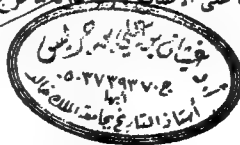 غيثان بن علي بن جريس
ج ٠٥٠٣٧٣٩٣٧٠
أبها
أستاذ التاريخ بجامعة الملك خالد